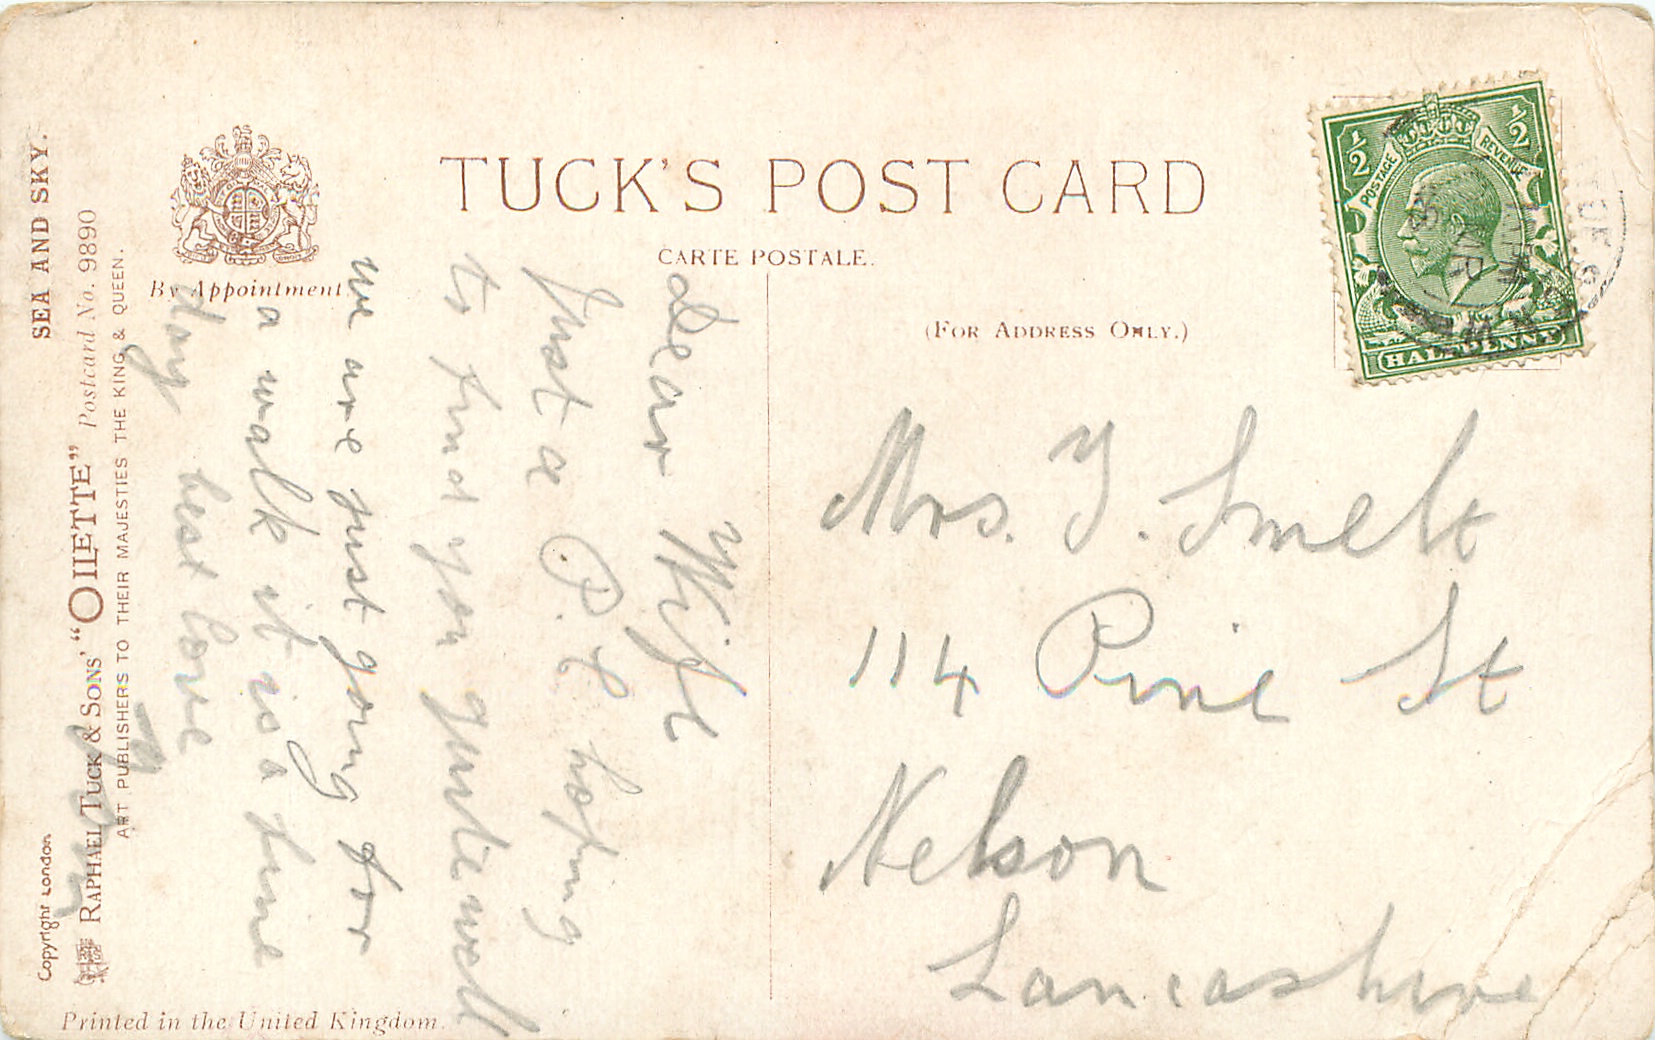 TUCK'S POST CARD
CARTE POSTALE.
(FOR ADDRESS ONLY.)
By Appointment
SEA AND SKY.
RAPHAEL TUCK & SONS' "OILETTE" Postcard No. 9890
ART PUBLISHERS TO THEIR MAJESTIES THE KING & QUEEN.
Copyright London
Printed in the United Kingdom.
dear Wife
Just a P.C hoping
to find you quite well
we are just going for
a walk it is a fine
day best love
Mrs. Y. Smelt
114 Pine St
Nelson
Lancashire
½ ½
POSTAGE REVENUE
HALFPENNY